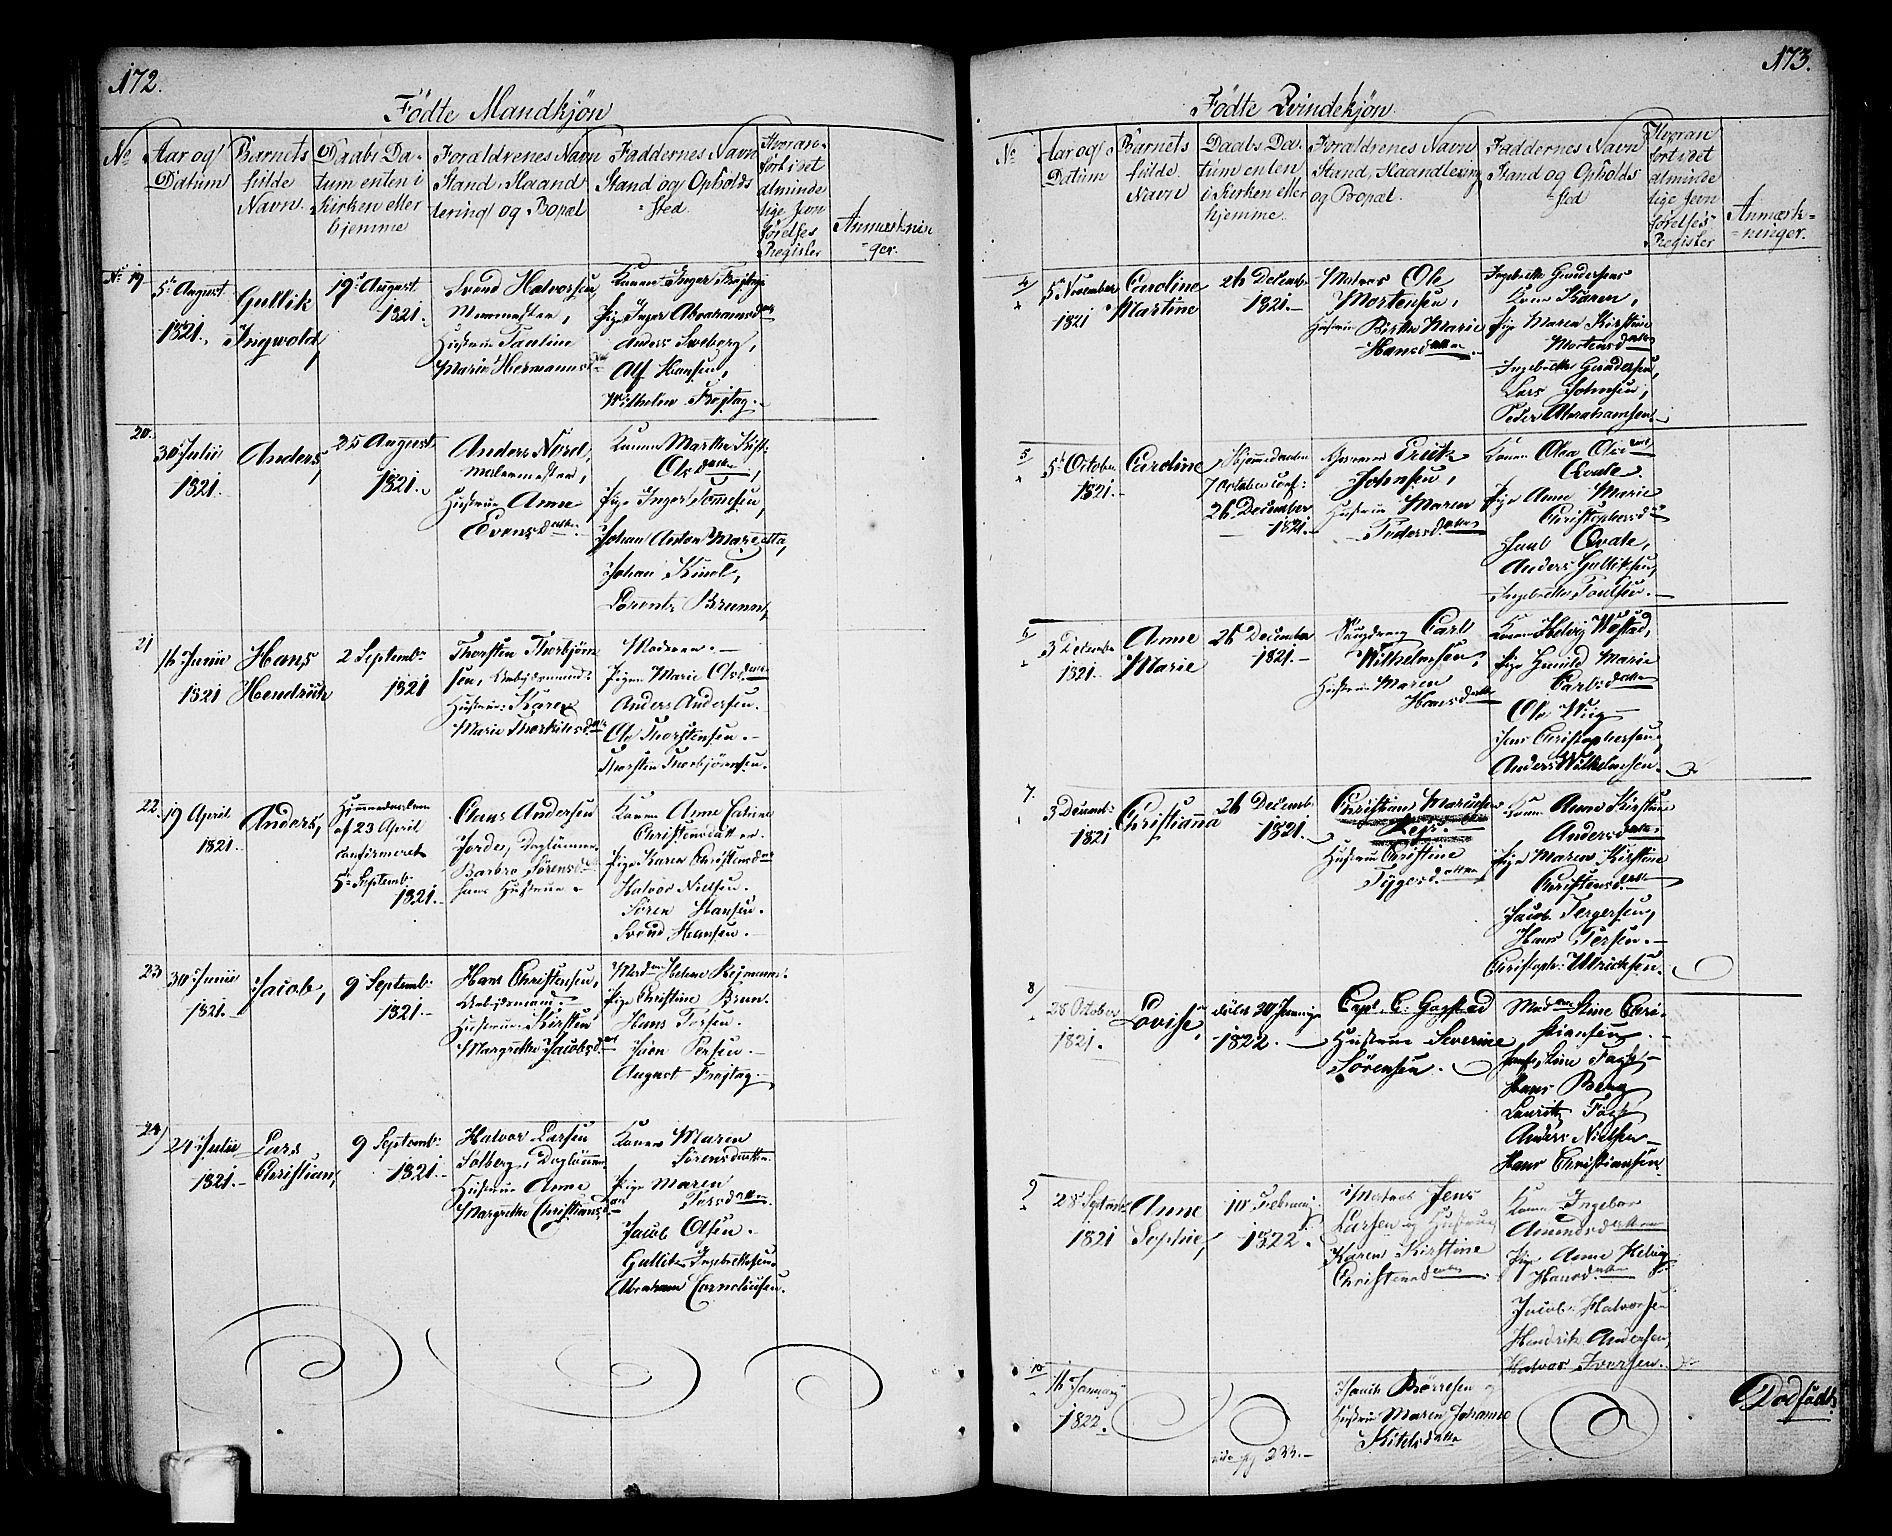 172.
Fødte Mandkjøn
No
Aar og
Datum
Barnets
fulde
Navn.
Daabs Da-
tum enten i
Kirken eller
hjemme
Forældrenes Navn
Stand, Haand
tering og Bopæl
Faddernes Navn
Stand og Opholds
sted.
Hvoran-
ført i det
alminde
lige Jevn
førelses
Register
Anmærknin
ger.
No 19
5 August
1821.
Gullik
Ingwold,
19 August
1821.
Svend Halvorsen
Muurmester,
Hustrue Pauline
Marie Hermansd
Konen Inger Frejtag
Pige Inger Abrahamsdatt
Anders Sneberg,
Alf Hansen,
Wilhelm Frejtag.
20.
30 Julii
1821.
Anders,
25 August
1821.
Anders Nord,
Malermester,
Hustrue Anne
Evensdatter.
Konen Marthe Kist:
Olsdatter,
Pige Inger Tomesen,
Johan Anton Marietta,
Johan Kinel,
Lorents Brunn,
21
16 Junii
1821
Hans
Hendrich
2 Septembr
1821
Thorsten Thorbjørn
sen, Arbejdsmand
Hustrue Karen
Marie Thorkildsd
Moderen.
Pigen Marie Olsdatter
Anders Andersen.
Ole Thorstensen.
Thorsten Thorbjørnsen.
22.
19 April
1821.
Anders,
Hjemmedøbt
af 23 April
confirmeret
5 Septemb.
1821.
Claus Andersen
Jordes, Daglønner
Barbro Sørensd
hans Hustrue
Konen Anne Catrine
Christensdatter.
Pige Karen Christensd
Halvor Nielsen.
Søren Hansen.
Svend Hansen.
23
30 Junii
1821.
Jacob,
9 Septemb.
1821.
Hans Christensen,
Arbejdsmand.
Hustrue Kirsten
Margrethe Jacobsd
Mad Helene Rejmann.
Pige Christine Brun.
Hans Torsen.
Jøen Persen.
August Frejtag.
24)
24 Julii
1821.
Lars
Christian,
9 Septemb.
1821.
Halvor Larsen
Solberg, Daglønner
Hustrue Anne
Margrethe Christiansd
Konen Maren
Sørensdatter.
Pige Maren
Larsdatter
Jacob Olsen.
Gullik Ingebrethsen
Abraham Corneliusen.
173.
Fødte Qvindekjøn.
No
Aar og
Datum
Barnets
fulde
Navn
Daabs Da-
tum enten
i Kirken eller
hjemme.
Forældrenes Navn
Stand, Haandtering
og Bopæl.
Faddernes Navn
Stand og Opholds
sted
Hvoran
ført i det
alminde
lige Jevn
førelses
Register
Anmærk-
ninger.
4
5 November
1821
Caroline
Martine
26 Decemb
1821.
Matros Ole
Mortensen,
Hustrue Birthe Marie
Hansdatter.
Ingebreth Gundersens
Kone Karen,
Pige Maren Kirstine
Mortensdatter
Ingebreth Gundersen,
Lars Johnsen,
Peder Abrahamsen.
5
5 October
1821.
Caroline
Hjemmedøbt
7 October conf:
26 December
1821.
Erick
Johnsen,
Hustrue Maren
Pedersdatter
Konen Olea Olsdatt
Qvale.
Pige Anne Marie
Christophersd
Paul Qvale,
Anders Gulliksen,
Ingebreth Poulsen.
6
3 December
1821.
Anne
Marie
26 December
1821.
Carl
Wilhelmsen,
Hustrue Maren
Hansdatter
Konen Helvig Wæstad,
Pige Gunild Marie
Carlsdatter
Ole Wiig
Jens Christophersen,
Anders Wilhelmsen.
7.
3 Decemb.
1821
Christianna
26 Decemb
1821.
Christian Marcussen
Hustrue Christine
Tygesdatter
Konen Anne Kirstine
Andersdatter,
Pige Maren Kirstine
Christensdatt
Jacob Tergersen,
Hans Persen.
Christoph: Ulrichsen.
8)
28 October
1821.
Lovise,
døbt 20 Januari
1822.
Capt. C. Garstad
Hustrue Severine
Sørensen.
Mad Stine Chri-
stiansen
Stine Fagh
Hans Berg
Lauritz Fagh
Anders Nielsen
Hans Christiansen
9
28 Septembr
1821
Anne
Sophie,
10 Februarj
1822.
Matros Jens
Larsen og Hustrue
Karen Kirstine
Christensdatter
Konen Ingebor
Amundsdatter
Pige Anne Helvig
Hansdatter
Jacob Halvorsen
Hendrik Andersen,
Halvor Iversen.
10
16 January
1822.
vide pag 233.
Jacob Børresen
Hustrue Maren Johanne
Kittelsdatter
Dødfødt.